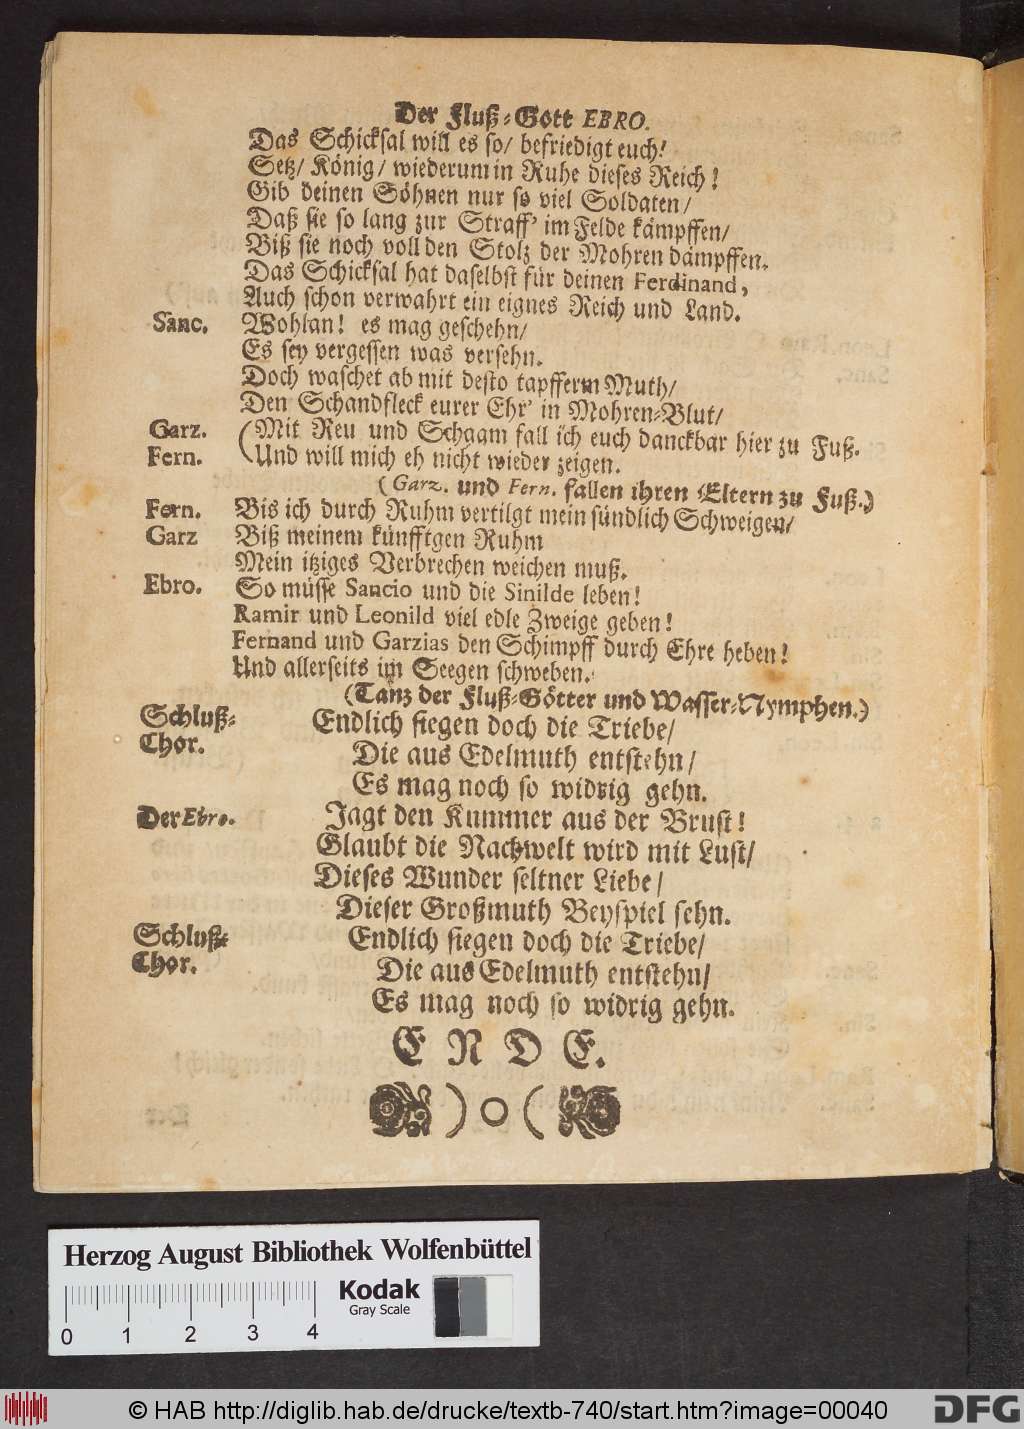 Der Fluß-Gott EBRO.
Das Schicksal will es so/ befriedigt euch!
Setz/ König/ wiederum in Ruhe dieses Reich!
Gib deinen Söhnen nur so viel Soldaten/
Daß sie so lang zur Straff' im Felde kämpffen/
Biß sie noch voll den Stolz der Mohren dämpffen.
Das Schicksal hat daselbst für deinen Ferdinand,
Auch schon verwahrt ein eignes Reich und Land.
Sanc. Wohlan! es mag geschehn/
Es sey vergessen was versehn.
Doch waschet ab mit desto tapfferm Muth/
Den Schandfleck eurer Ehr' in Mohren-Blut/
Garz. (Mit Reu und Schaam fall ich euch danckbar hier zu Fuß.
Fern. (Und will mich eh nicht wieder zeigen.
(Garz. und Fern. fallen ihren Eltern zu Fuß.)
Fern. Bis ich durch Ruhm vertilgt mein sündlich Schweigen/
Garz Biß meinem künfftgen Ruhm
Mein itziges Verbrechen weichen muß.
Ebro. So müsse Sancio und die Sinilde leben!
Ramir und Leonild viel edle Zweige geben!
Fernand und Garzias den Schimpff durch Ehre heben!
Und allerseits im Seegen schweben.
(Tanz der Fluß-Götter und Wasser-Nymphen.)
Schluß- Endlich siegen doch die Triebe/
Chor. Die aus Edelmuth entstehn/
Es mag noch so widrig gehn.
Der Ebro. Jagt den Kummer aus der Brust!
Glaubt die Nachwelt wird mit Lust/
Dieses Wunder seltner Liebe/
Dieser Großmuth Beyspiel sehn.
Schluß- Endlich siegen doch die Triebe/
Chor. Die aus Edelmuth entstehn/
Es mag noch so widrig gehn.
ENDE.
)O(
Herzog August Bibliothek Wolfenbüttel
Kodak
Gray Scale
0 1 2 3 4
© HAB http://diglib.hab.de/drucke/textb-740/start.htm?image=00040
DFG